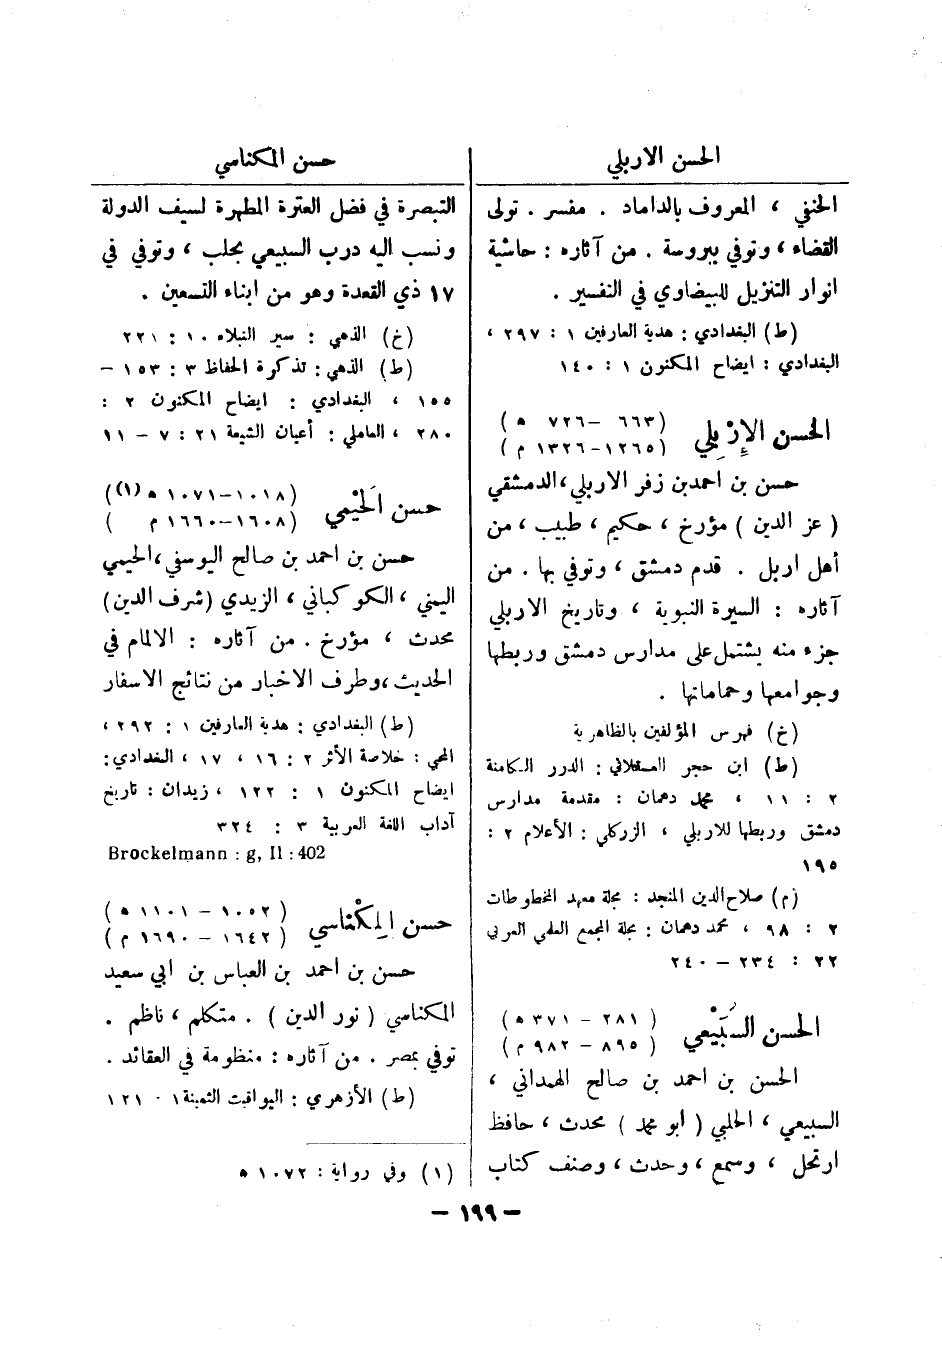 الحسن الاربلي
الحنفي ، المعروف بالداماد . مفسر . تولى
القضاء ، وتوفي ببروسة . من آثاره : حاشية
انوار التنزيل للبيضاوي في التفسير .
(ط) البغدادي : هدية العارفين ١ : ٢٩٧ ،
البغدادي : ايضاح المكنون ١ : ١٤٠
الحسن الإربلي (٦٦٣ - ٧٢٦ ه)
(١٢٦٥ - ١٣٢٦ م)
حسن بن احمد بن زفر الاربلي ، الدمشقي
( عز الدين ) مؤرخ ، حكيم ، طبيب ، من
أهل اربل . قدم دمشق ، وتوفي بها . من
آثاره : السيرة النبوية ، وتاريخ الاربلي
جزء منه يشتمل على مدارس دمشق وربطها
وجوامعها وحماماتها .
(خ) فهرس المؤلفين بالظاهرية
(ط) ابن حجر العسقلاني : الدرر الكامنة
٢ : ١١ ، محمد دهمان : مقدمة مدارس
دمشق وربطها للاربلي ، الزركلي : الأعلام ٢ :
١٩٥
(م) صلاح الدين المنجد : مجلة معهد المخطوطات
٢ : ٩٨ ، محمد دهمان : مجلة المجمع العلمي العربي
٢٢ : ٢٣٤ - ٢٤٠
الحسن السبيعي ( ٢٨١ - ٣٧١ ه)
( ٨٩٥ - ٩٨٢ م)
الحسن بن احمد بن صالح الهمداني ،
السبيعي ، الحلبي ( أبو محمد ) محدث ، حافظ
ارتحل ، وسمع ، وحدث ، وصنف كتاب
حسن المكناسي
التبصرة في فضل العترة المطهرة لسيف الدولة
ونسب اليه درب السبيعي بحلب ، وتوفي في
١٧ ذي القعدة وهو من ابناء التسعين .
(خ) الذهبي : سير النبلاء ١٠ : ٢٢١
(ط) الذهبي : تذكرة الحفاظ ٣ : ١٥٣ -
١٥٥ ، البغدادي : ايضاح المكنون ٢ :
٢٨٠ ، العاملي : أعيان الشيعة ٢١ : ٧ - ١١
حسن الحيمي (١٠١٨ - ١٠٧١ ه (١))
(١٦٠٨ - ١٦٦٠ م )
حسن بن احمد بن صالح اليوسفي ، الحيمي
اليمني ، الكوكباني ، الزيدي (شرف الدين)
محدث ، مؤرخ . من آثاره : الالمام في
الحديث ، وطرف الاخبار من نتائج الاسفار
(ط) البغدادي : هدية العارفين ١ : ٢٩٢ ،
المحبي : خلاصة الأثر ٢ : ١٦ ، ١٧ ، البغدادي :
ايضاح المكنون ١ : ١٢٢ ، زيدان : تاريخ
آداب اللغة العربية ٣ : ٣٢٤
Brockelmann : g, II : 402
حسن المكناسي ( ١٠٥٢ - ١١٠١ ه )
( ١٦٤٢ - ١٦٩٠ م )
حسن بن احمد بن العباس بن ابي سعيد
المكناسي ( نور الدين ) . متكلم ، ناظم .
توفي بمصر . من آثاره : منظومة في العقائد .
(ط) الأزهري : اليواقيت الثمينة ١ : ١٢١
(١) وفي رواية : ١٠٧٢ ه
- ١٩٩ -